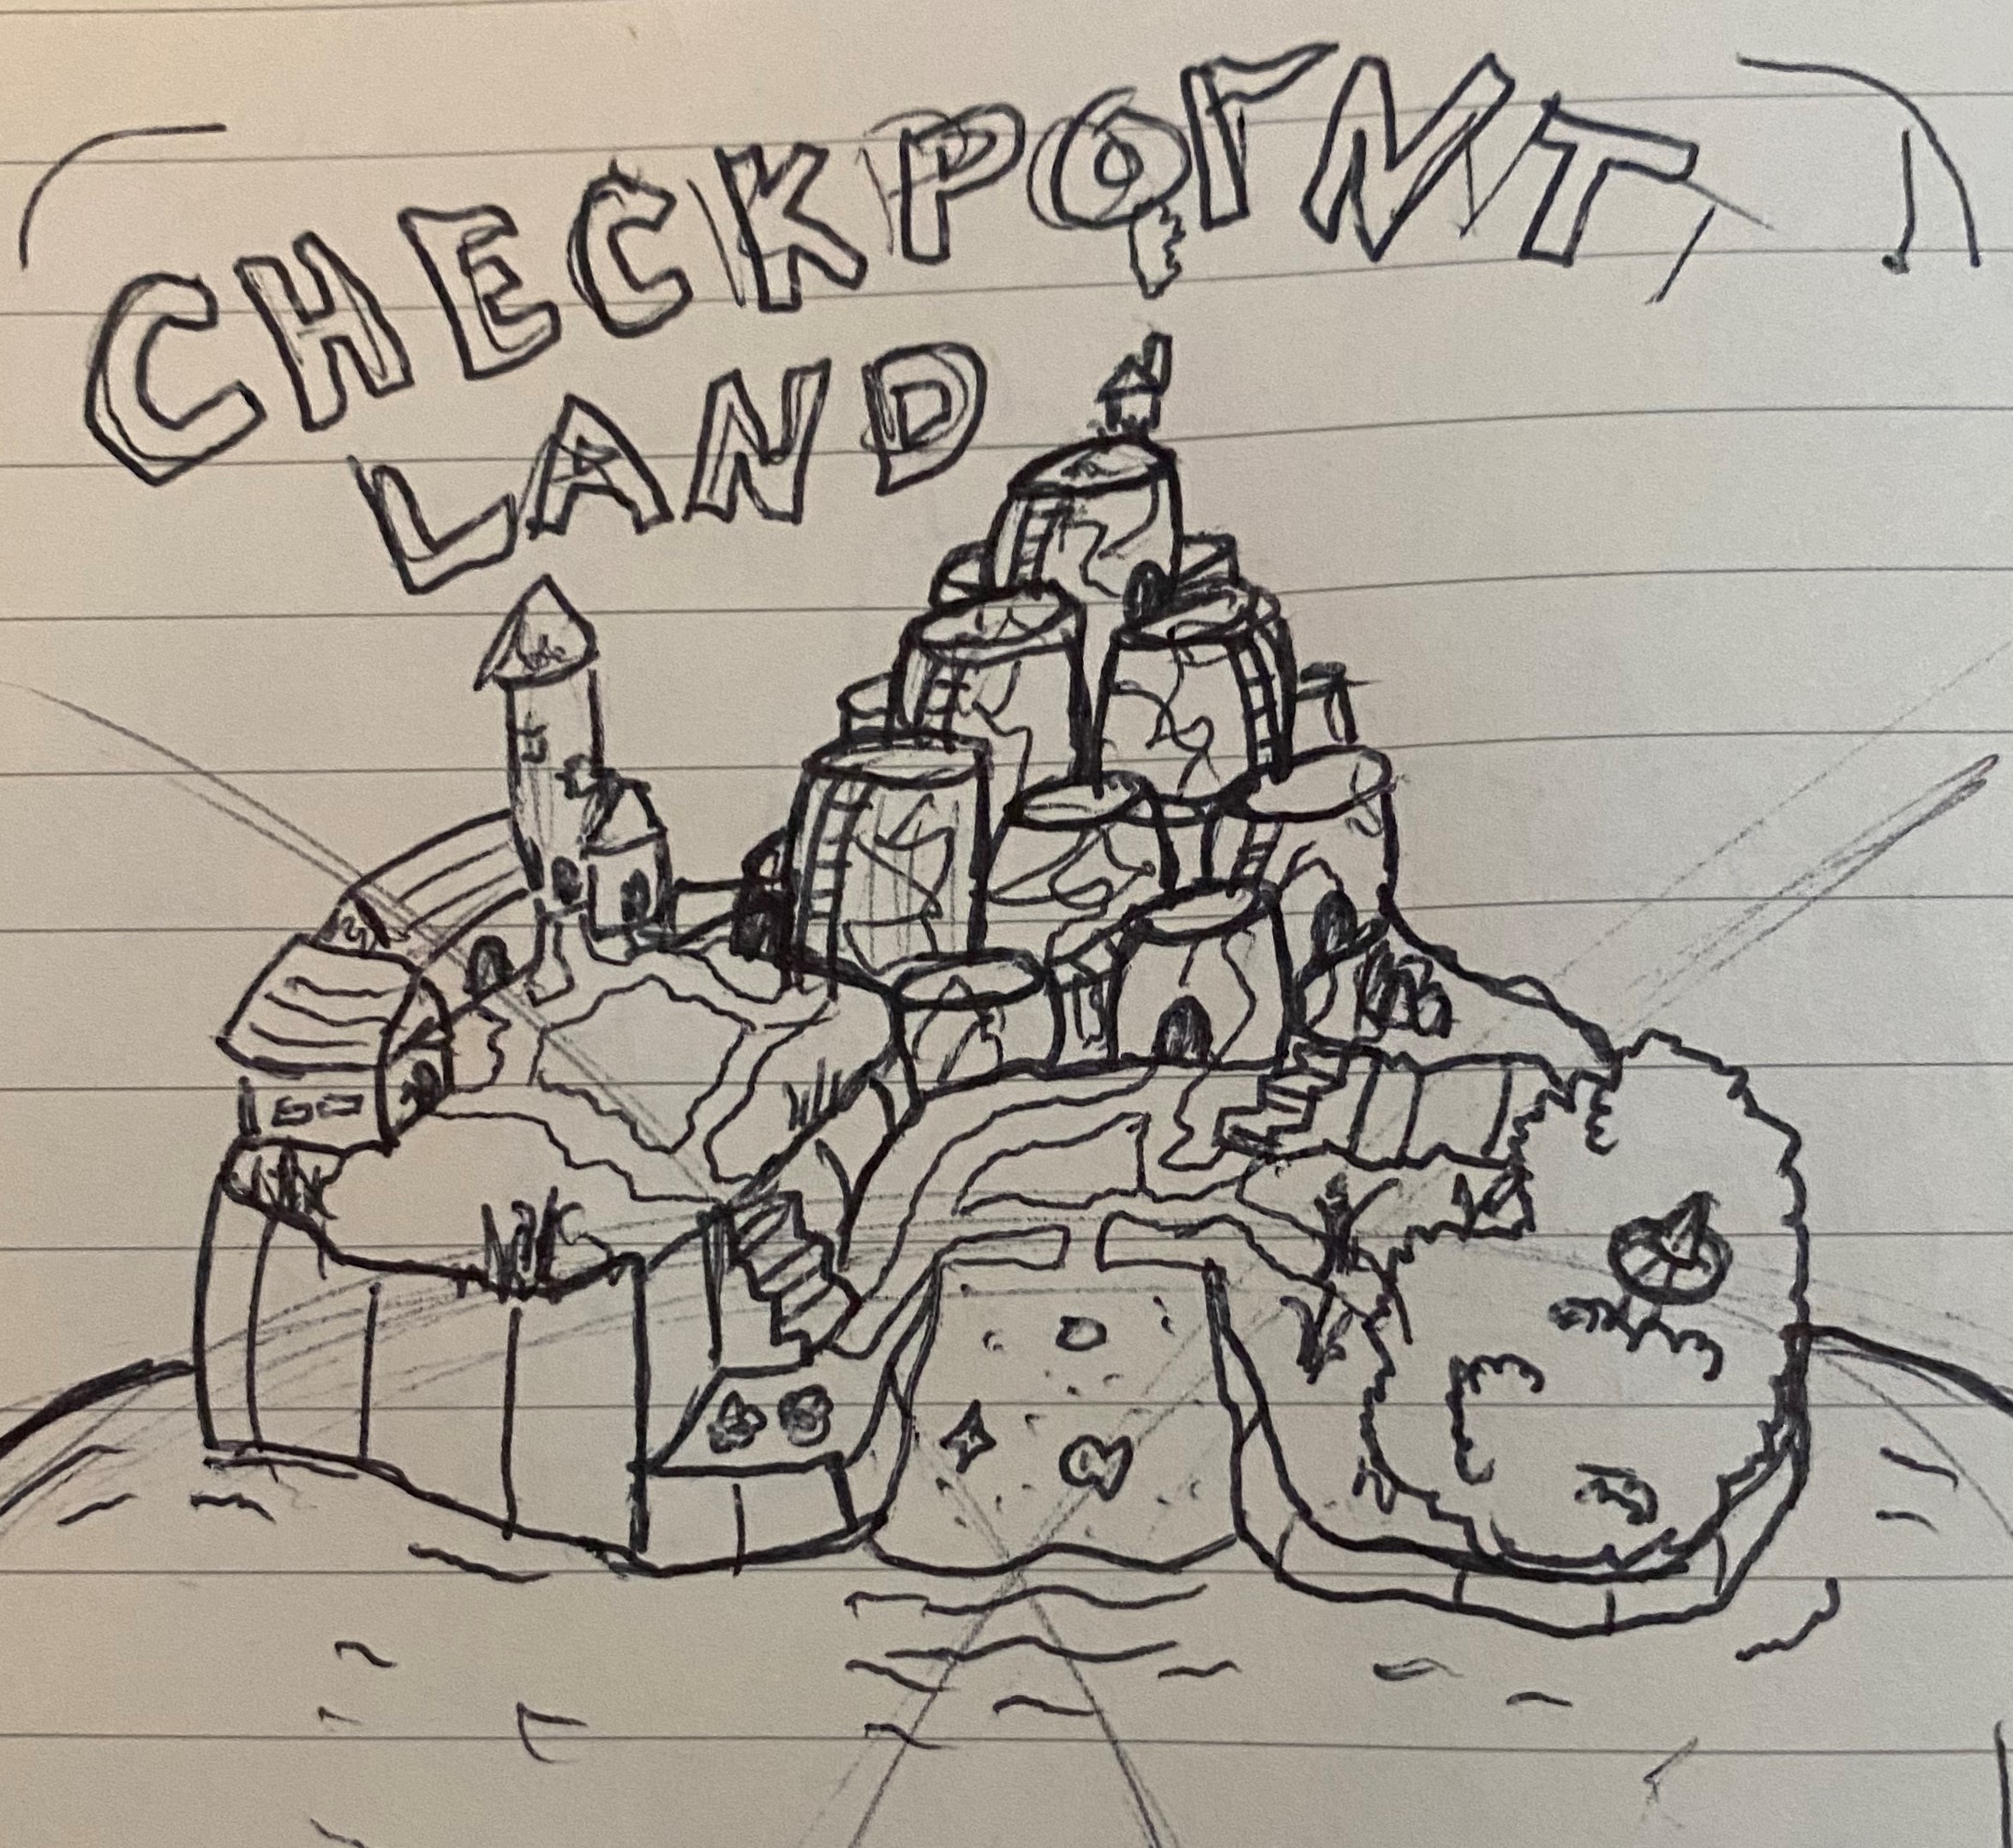 CHECKPOINT
LAND